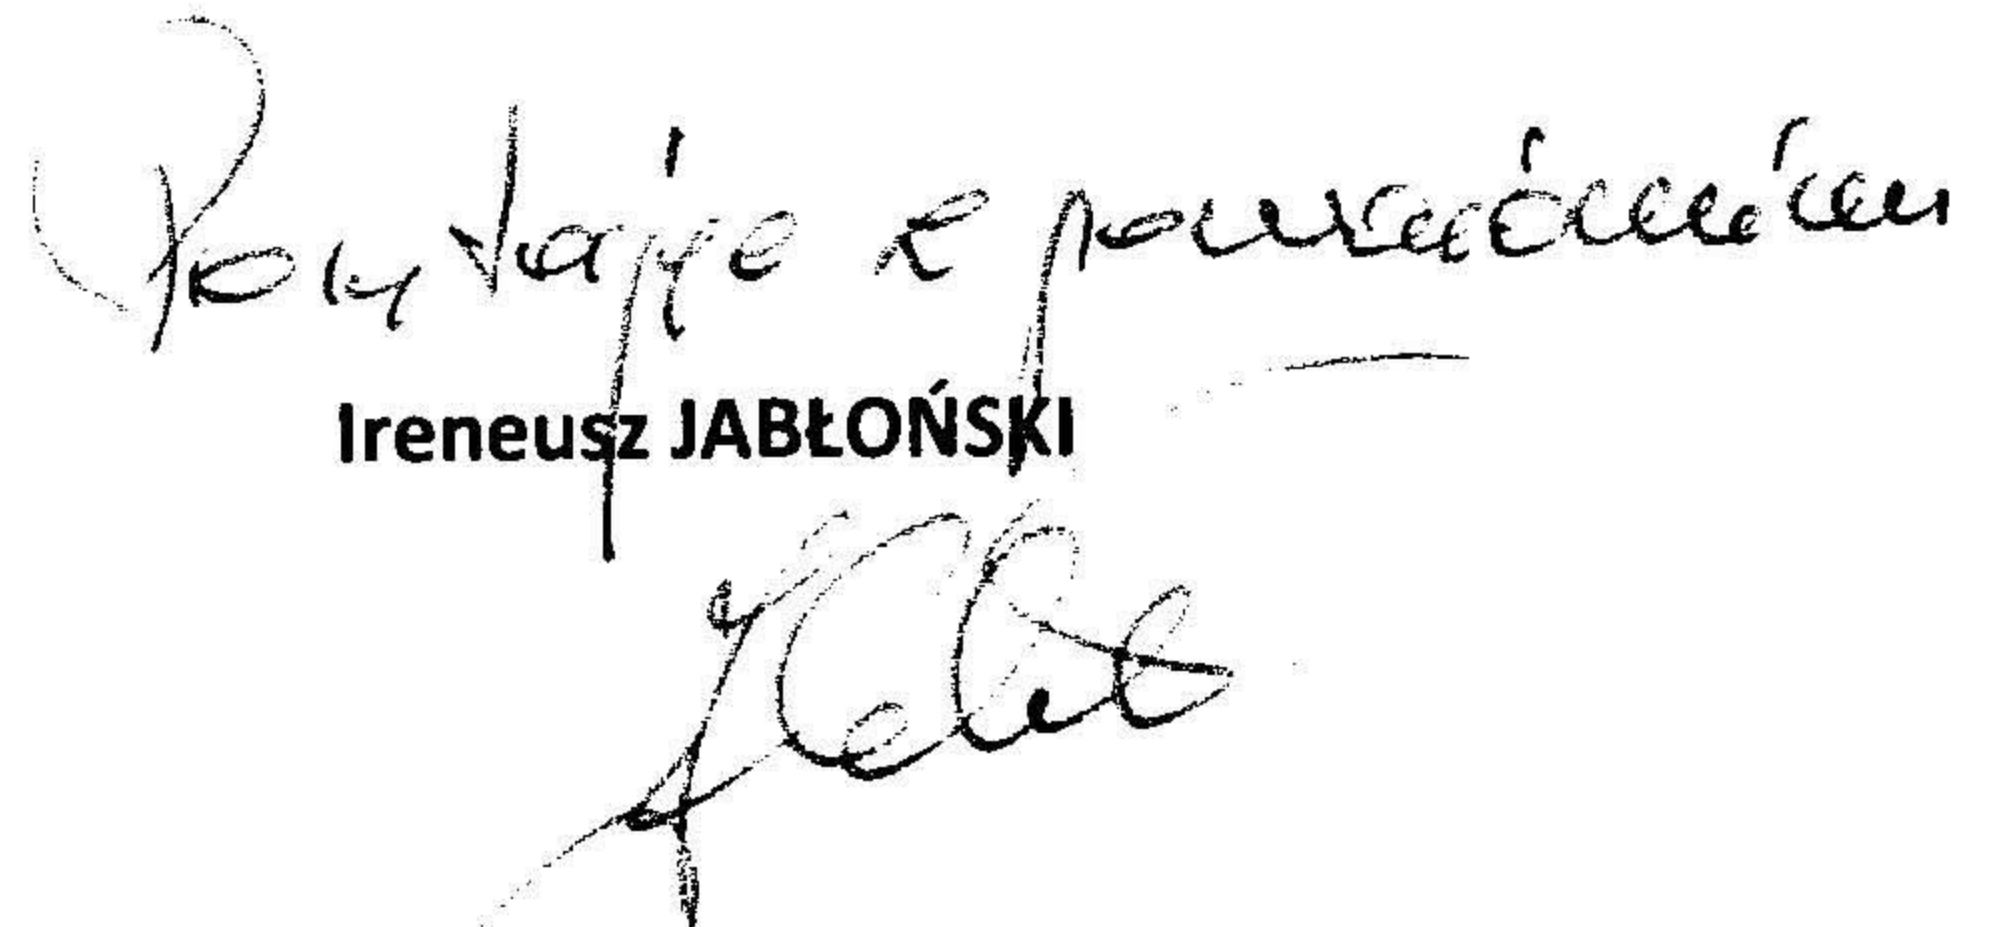 Pozostaję z poważaniem
Ireneusz JABŁOŃSKI